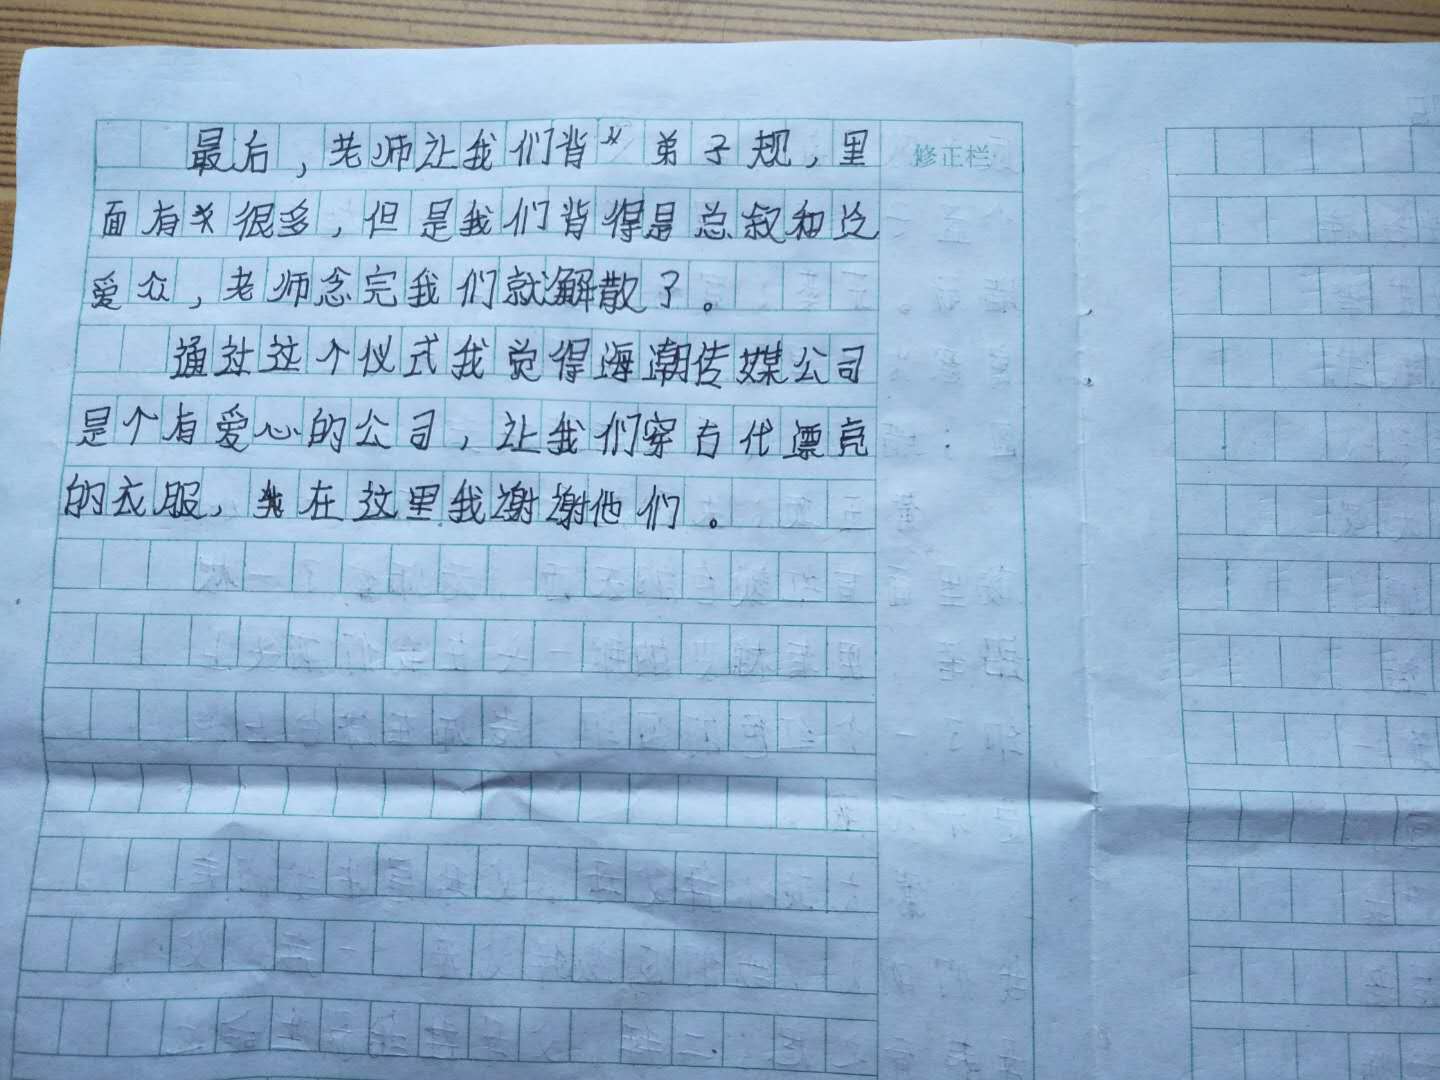 最后，老师让我们背“弟子规，里
修正栏
面有关很多，但是我们背得是总叙和泛
爱众，老师念完我们就解散了。
通过这个仪式我觉得海潮传媒公司
是个有爱心的公司，让我们穿古代漂亮
的衣服，在这里我谢谢他们。